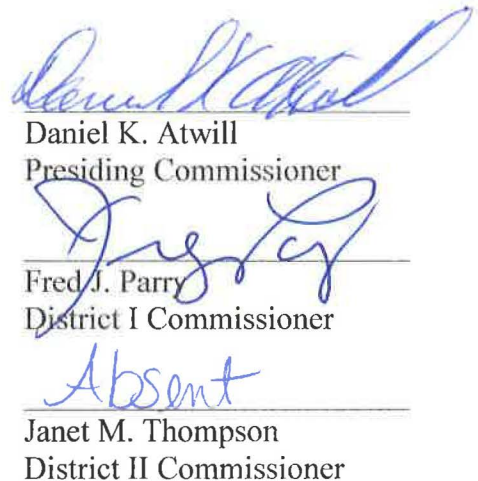 Daniel K Atwill
Daniel K. Atwill
Presiding Commissioner
Fred J. Parry
District I Commissioner
Absent
Janet M. Thompson
District II Commissioner